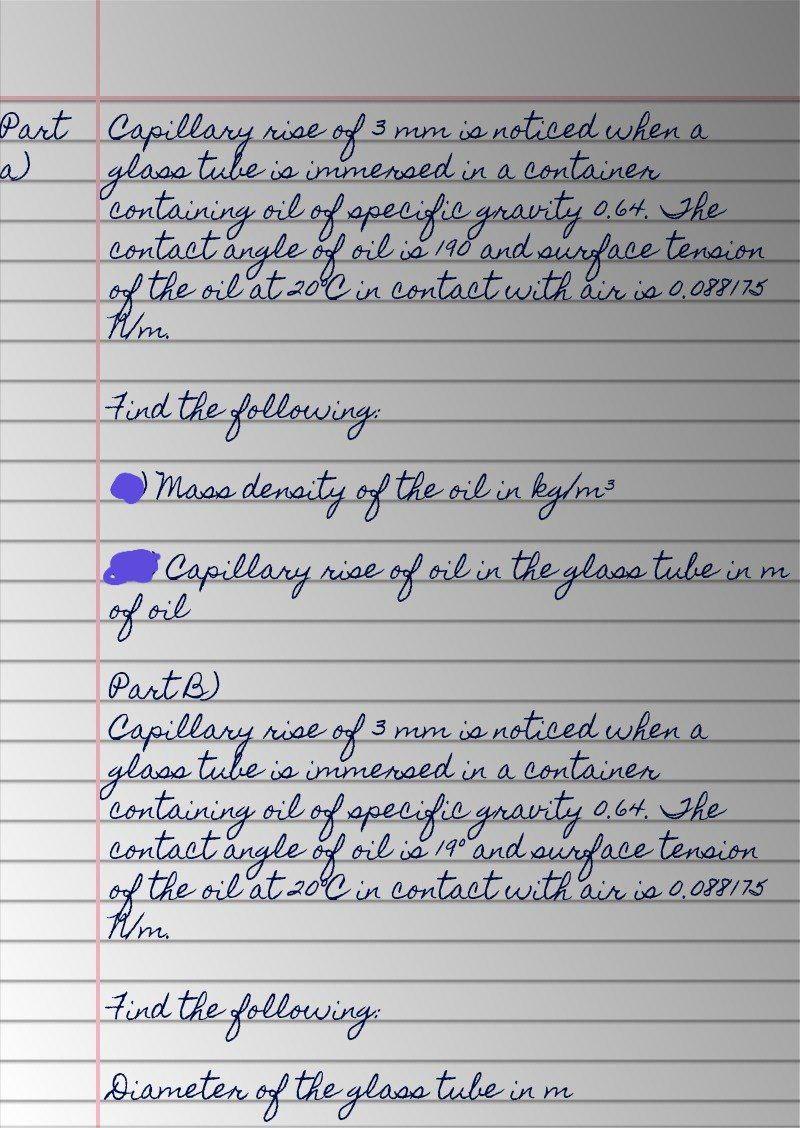 Part
a)
Capillary rise of 3 mm is noticed when a
glass tube is immersed in a container
containing oil of specific gravity 0.64. The
contact angle of oil is 190 and surface tension
of the oil at 20°C in contact with air is 0.088175
N/m.
Find the following:
) Mass density of the oil in kg/m³
Capillary rise of oil in the glass tube in m
of oil
Part B)
Capillary rise of 3 mm is noticed when a
glass tube is immersed in a container
containing oil of specific gravity 0.64. The
contact angle of oil is 19° and surface tension
of the oil at 20°C in contact with air is 0.088175
N/m.
Find the following:
Diameter of the glass tube in m